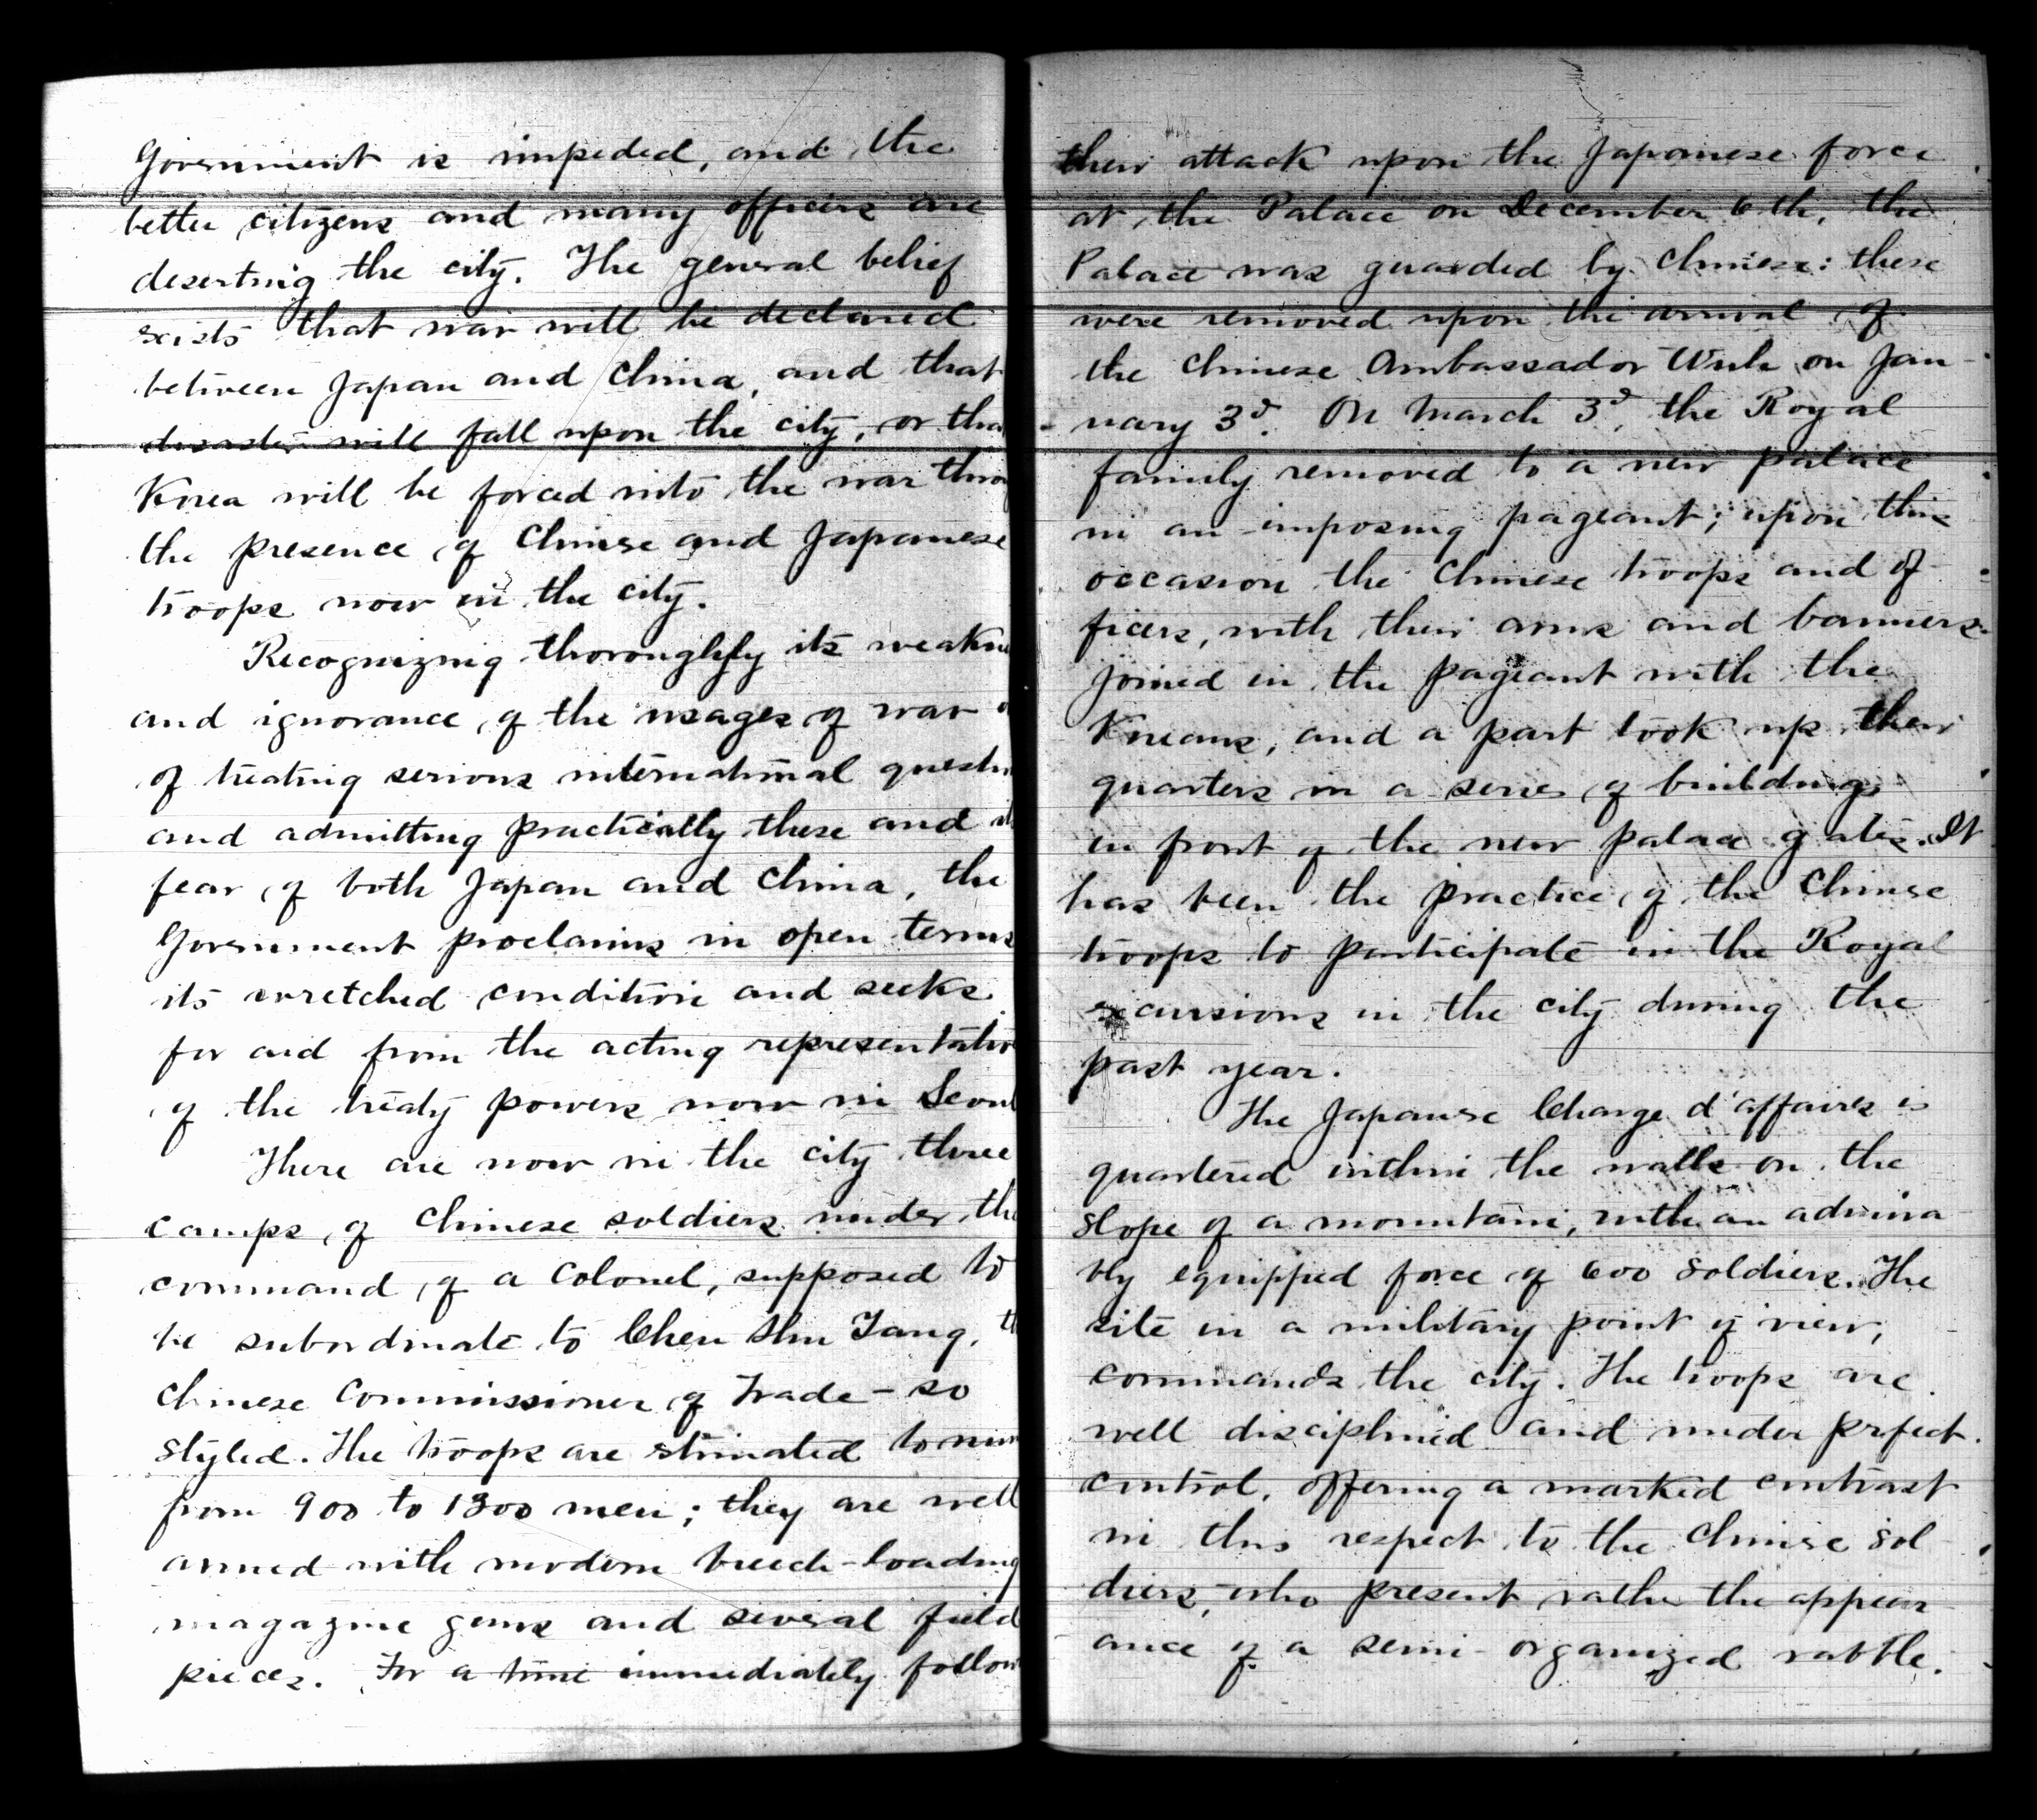 Government is impeded, and the
better citizens and many officers are
deserting the city. The general belief
exists that war will be declared
between Japan and China, and that
disaster will fall upon the city, or tha
Korea will be forced into the war throu
the presence of Chinese and Japanese
troops now in the city.
Recognizing thoroughly its weakne
and ignorance of the usages of war
of treating serious international questi
and admitting practically these and
fear of both Japan and China, the
Government proclaims in open terms
its wretched condition and seeks
for aid from the acting representativ
of the treaty powers now in Seoul
There are now in the city three
camps of Chinese soldiers under the
command of a Colonel, supposed to
be subordinate to Chen Shu Tang, th
Chinese Commissioner of Trade - so
styled. The troops are stimated to num
from 900 to 1300 men; they are well
armed with modern breech-loading
magazine guns and several field
pieces. For a time immediately follow
their attack upon the Japanese force
at the Palace on December 6th, the
Palace was guarded by Chinese: these
were removed upon the arrival of
the Chinese Ambassador Wuh on Jan-
uary 3d. On March 3d, the Royal
family removed to a new palace
in an imposing pageant; upon this
occasion the Chinese troops and of-
ficers, with their arms and banners
joined in the pageant with the
Koreans, and a part took up their
quarters in a series of buildings
in front of the new palace gates. It
has been the practice of the Chinese
troops to participate in the Royal
excursions in the city during the
past year.
The Japanese Charge d'affaires is
quartered within the walls on the
slope of a mountain, with an admira
bly equipped force of 600 soldiers. The
site in a military point of view,
commands the city. The troops are
well disciplined and under prfect
control, offering a marked contrast
in this respect to the Chinese sol
diers, who present rather the appear
ance of a semi-organized rabble.